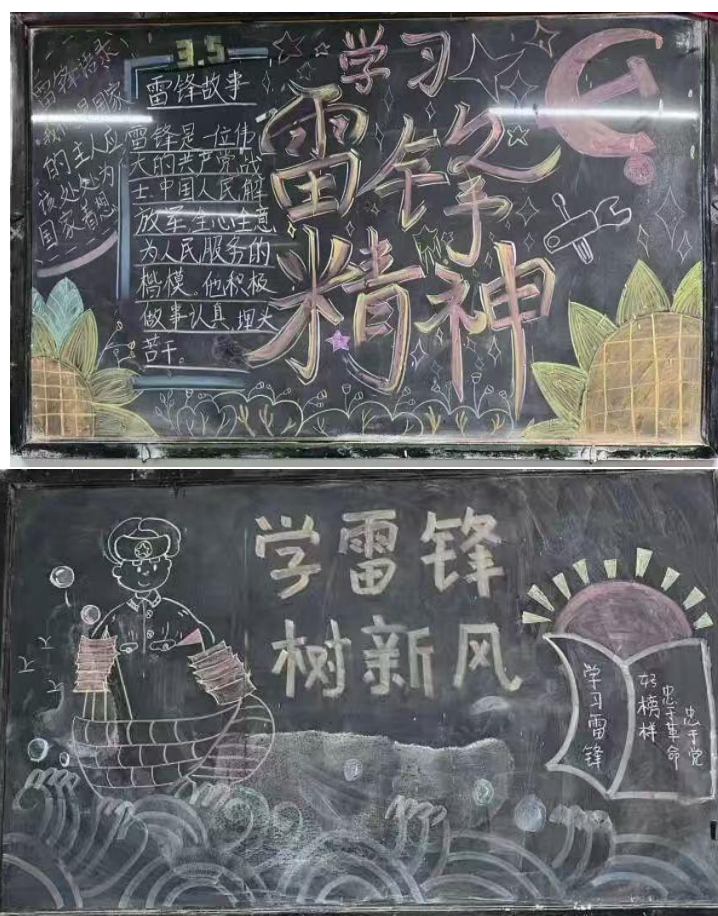 雷锋语录
的主人应
该处处为
国家着想
3.5
雷锋故事
雷锋是一位伟
大的共产党战
士.中国人民解
放军.全心全意
为人民服务的
楷模。他积极
做事认真,埋头
苦干。
学习
雷锋
精神
学雷锋
树新风
学习雷锋
好榜样
忠于革命
忠于党